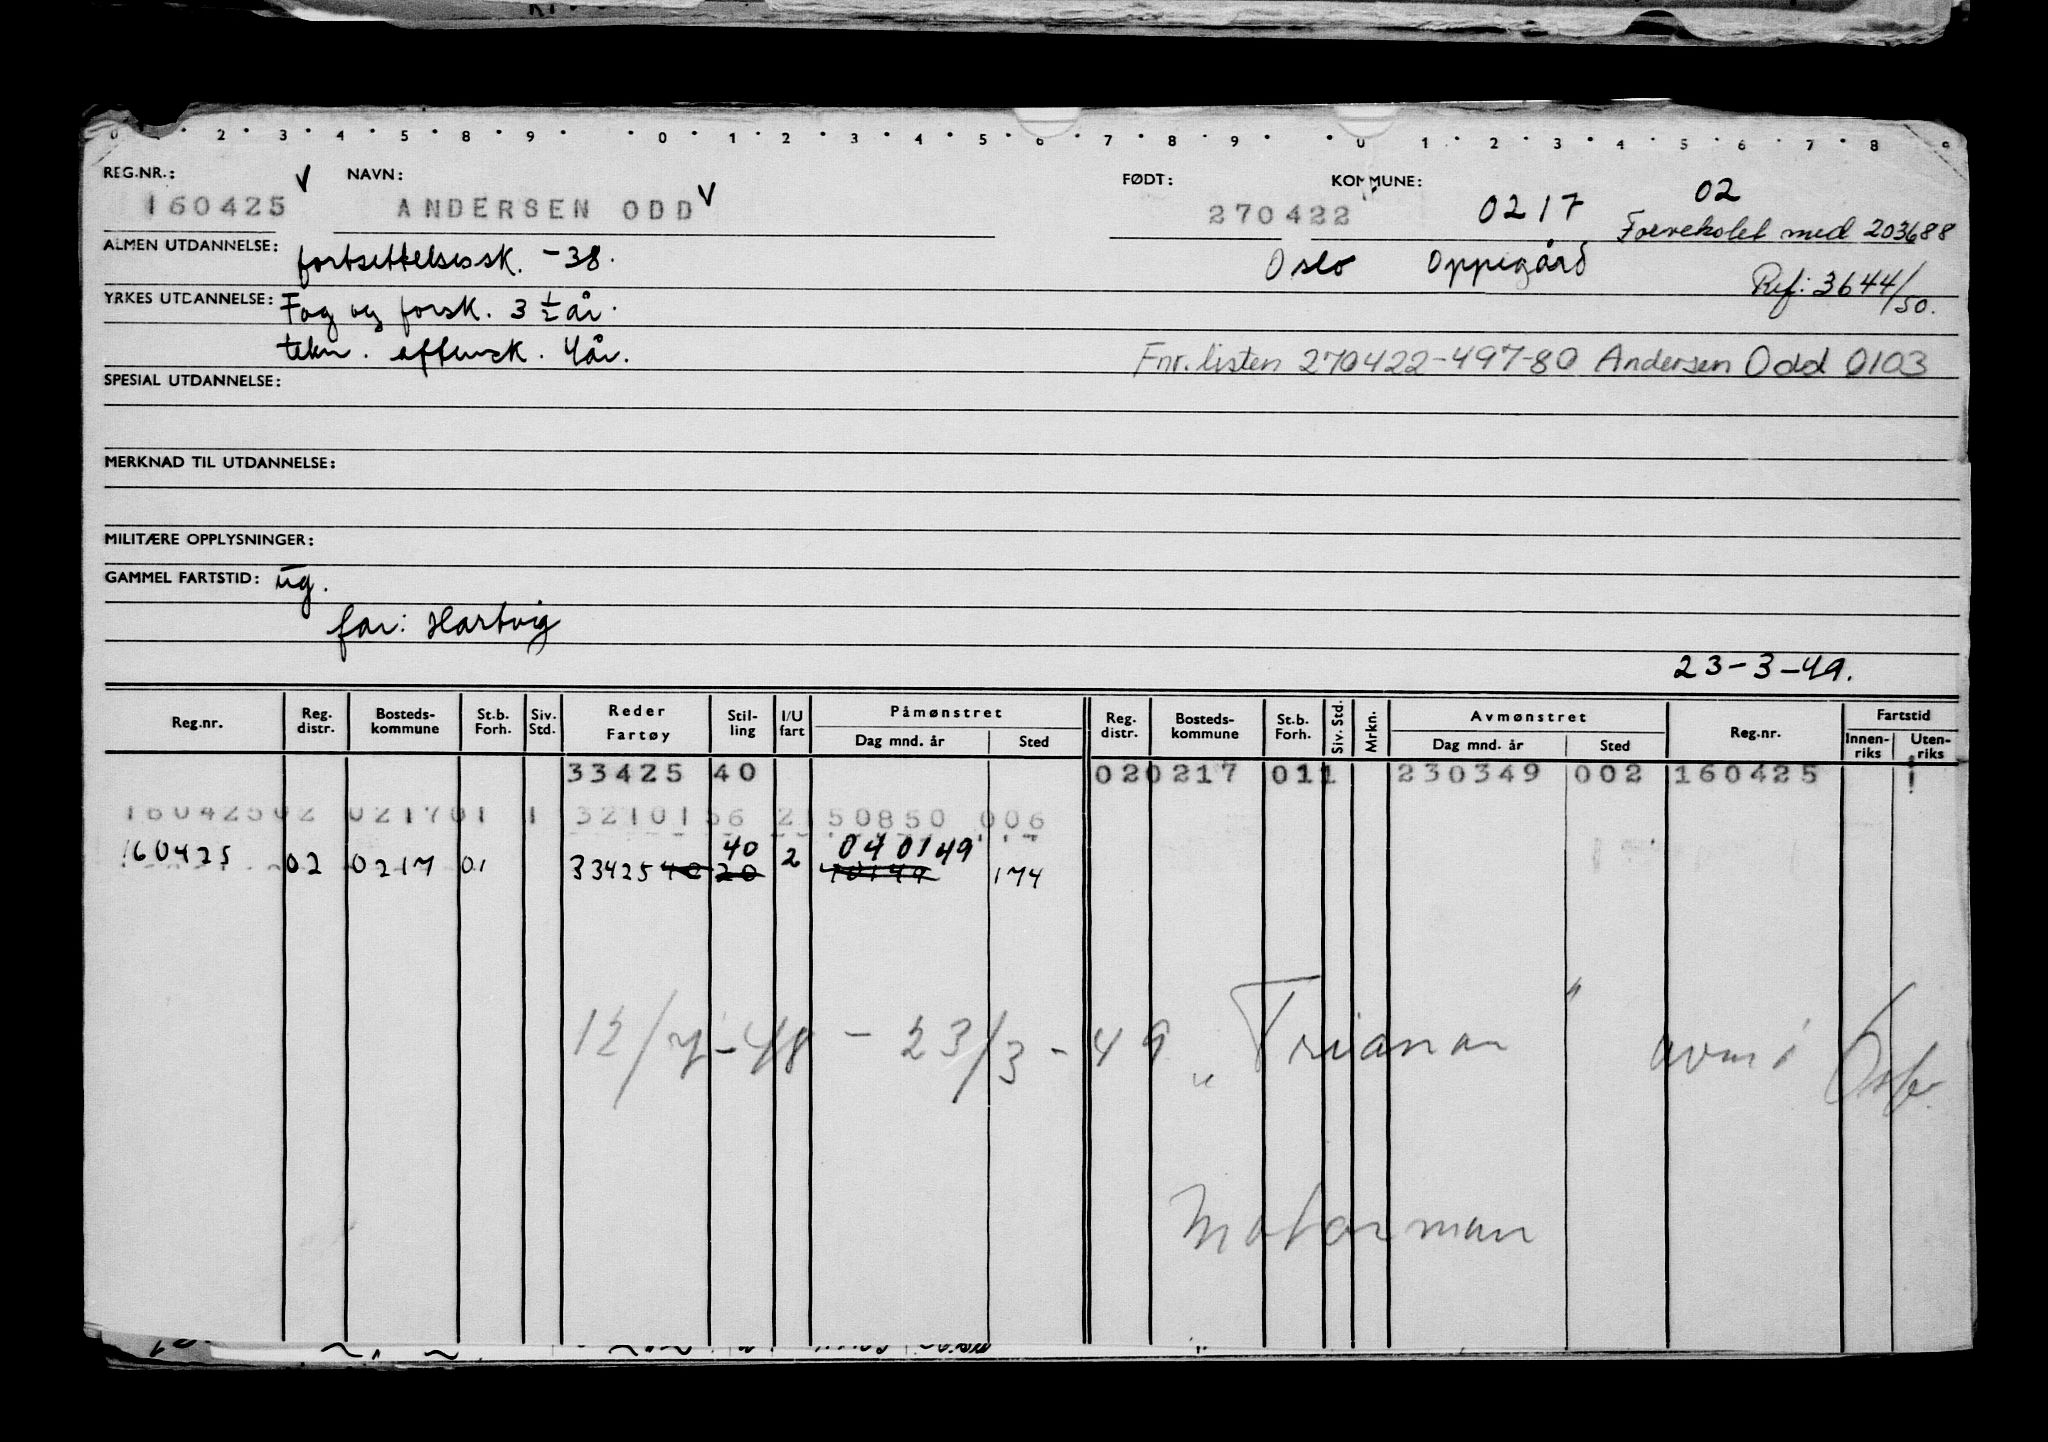 0 2 3 4 5 8 9 0 1 2 3 4 5 6 7 8 9 0 1 2 3 4 5 6 7 8 9
REG.NR.: V NAVN: V FØDT: KOMMUNE: 02
160425 ANDERSEN ODD 270422 0217 Forvekslet med 203688
ALMEN UTDANNELSE: fortsettelsessk. -38. Oslo Oppegård
YRKES UTDANNELSE: Fag og forsk. 3 ½ år. Ref: 3644/50.
tekn. aftensk. 4 år. Fnr. listen 270422-497-80 Andersen Odd 0103
SPESIAL UTDANNELSE:
MERKNAD TIL UTDANNELSE:
MILITÆRE OPPLYSNINGER:
GAMMEL FARTSTID: ug.
far: Hartvig
23-3-49.
Reg.nr. Reg. distr. Bosteds-kommune St.b. Forh. Siv. Std. Reder Fartøy Stil-ling I/U fart Påmønstret Dag mnd. år Sted Reg. distr. Bosteds-kommune St.b. Forh. Siv. Std. Mrkn. Avmønstret Dag mnd. år Sted Reg.nr. Fartstid Innen-riks Uten-riks
33425 40 020217 011 230349 002 160425
16042502 021701 1 3210156 2150850 006
40 2 040149
160425 02 0217 01 33425 40 20 174
12/7-48 - 23/3-49 "Trianon" avm i Oslo
Motorman